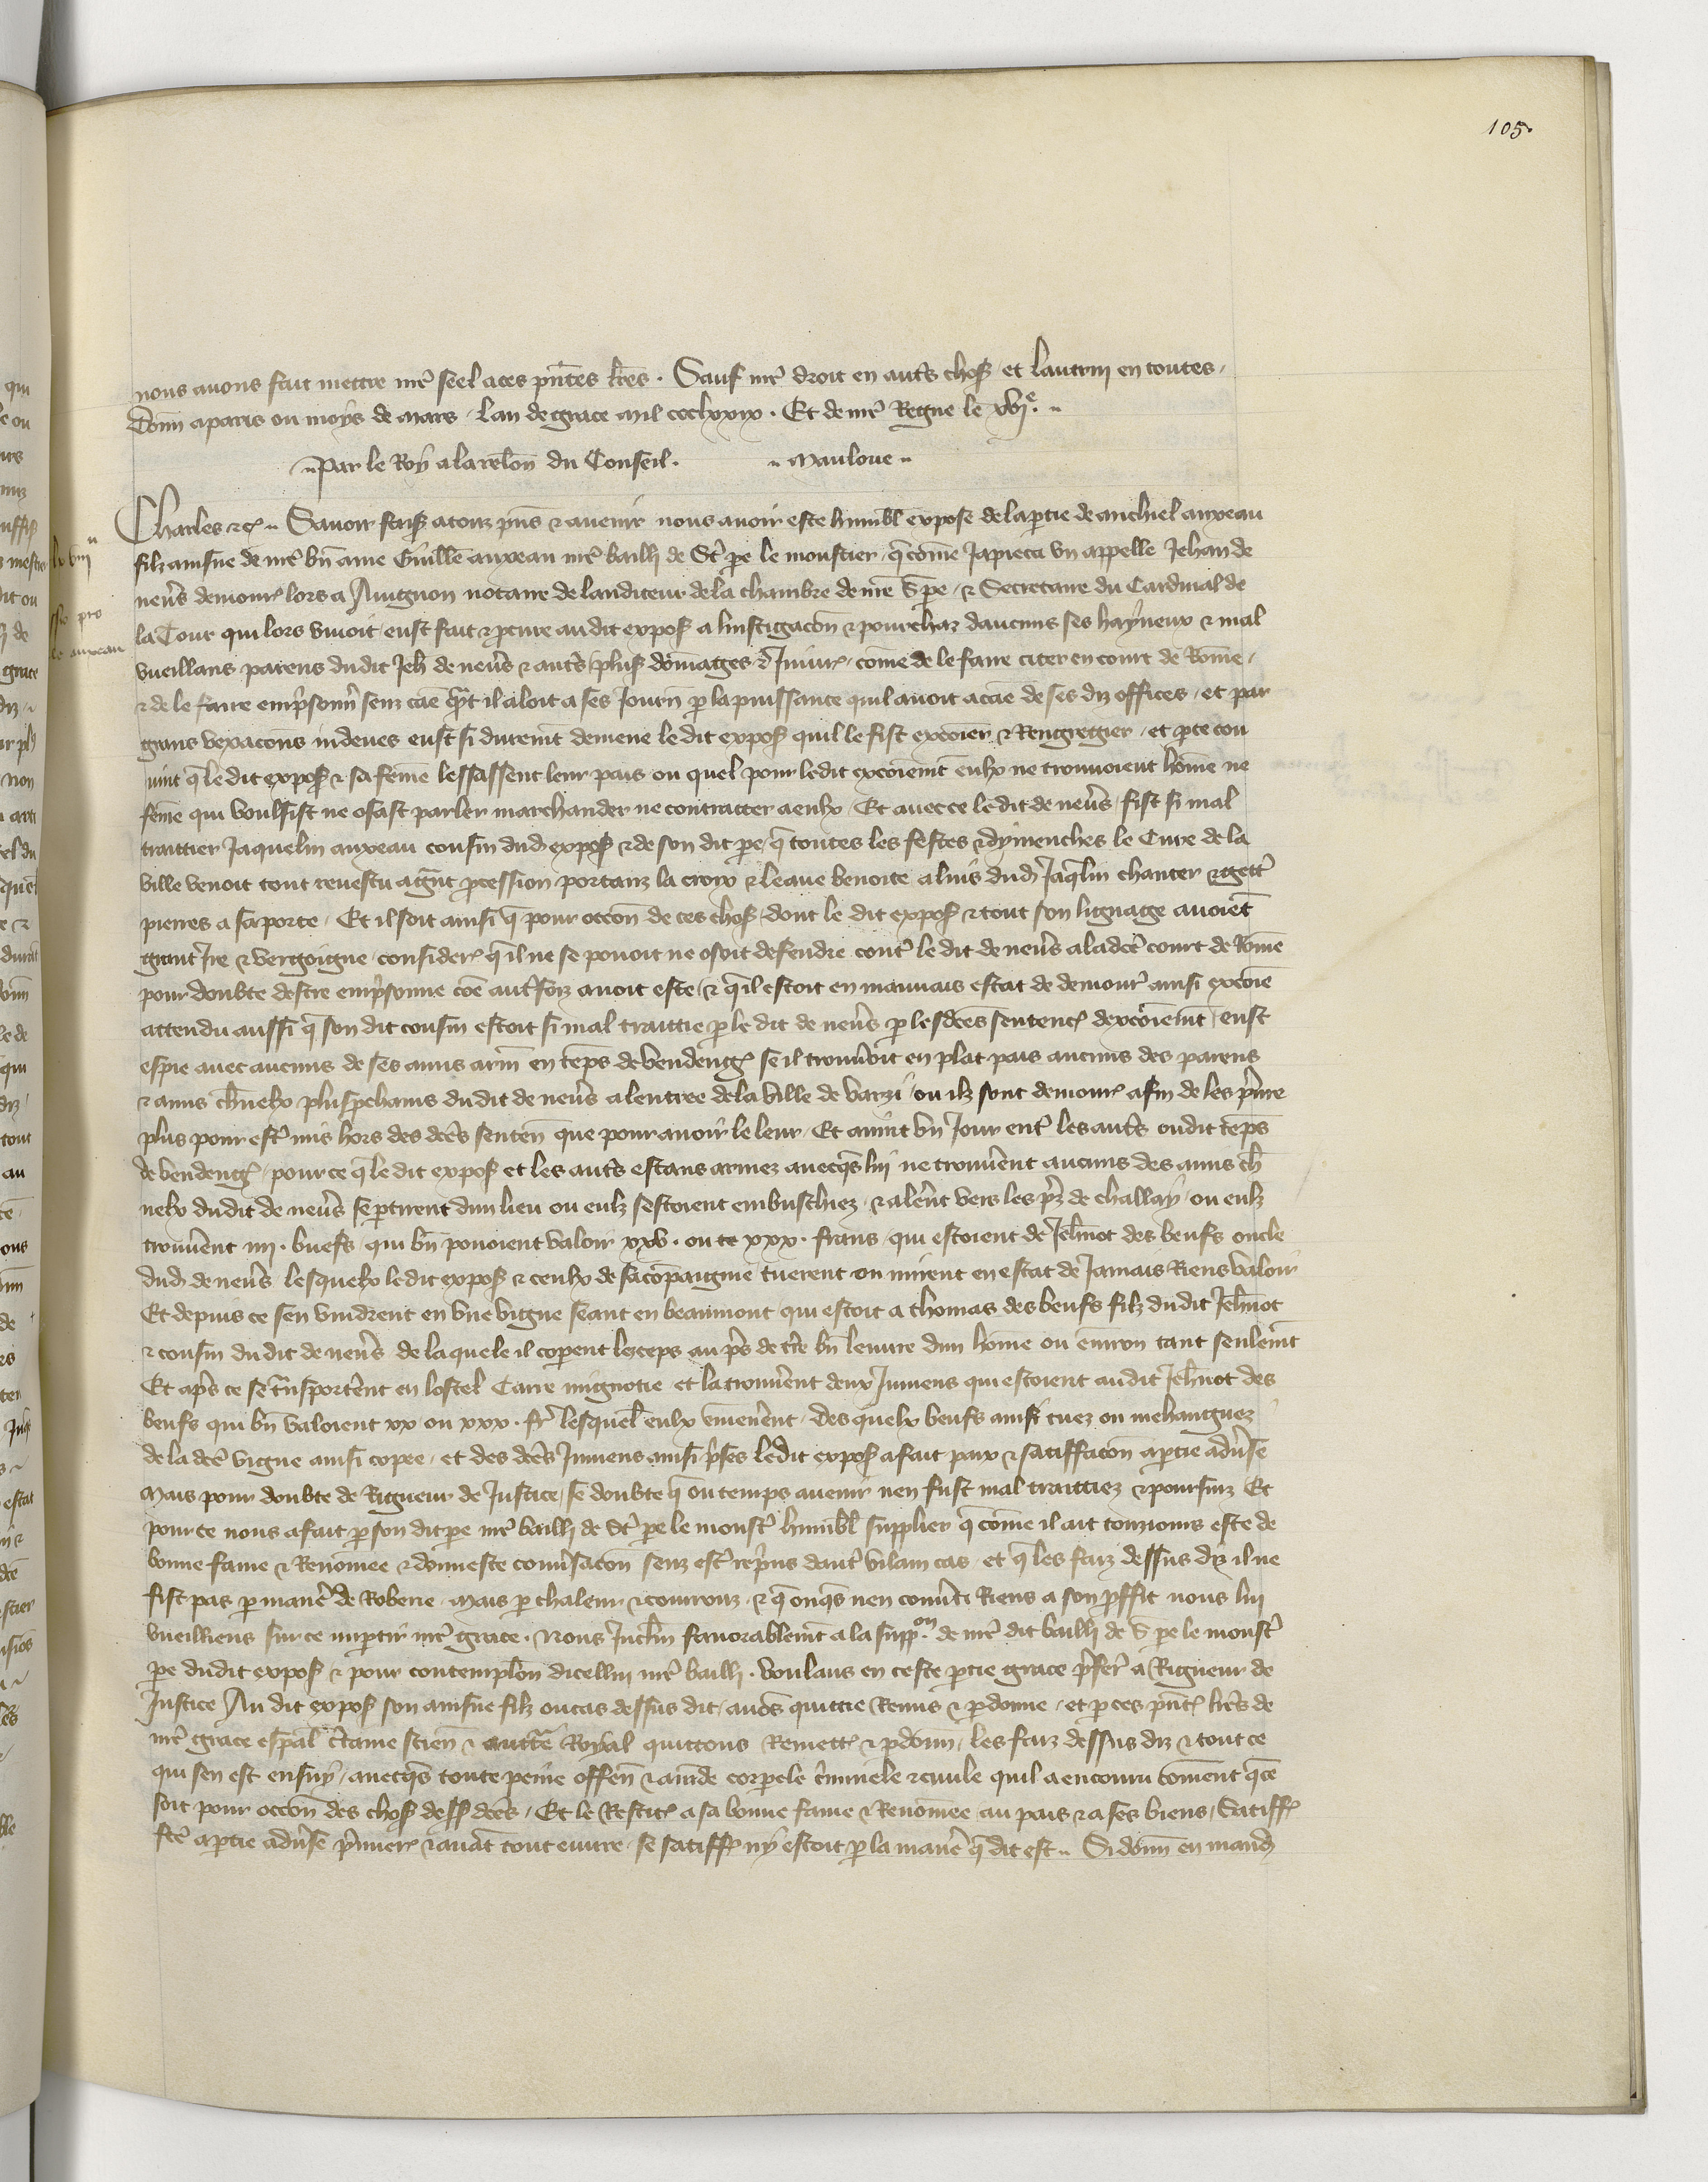 105.
nous avons fait mettre nr̃e seel a ces pñtes lr̃es . Sauf nr̃e droit en autr̃s chos̃ et lautruy en toutes .
Donñ a paris ou moys de mars . Lan de grace mil ccclxxix . Et de nr̃e Regne le xvi.e
Par le Roy a la rel̃on du Conseil . Mauloue
Charles &c̃ Savoir fais̃ a touz pñs & avenir nous avoir este humbl̃ expose de la ꝑtie de anchiel anxeau
filz ainsne de nr̃e bñ ame Guill̃e anxeau nr̃e bailli de St̃ pe le moustier , q̃ com̃e Ja pieca un appelle Jehan de
nevr̃s demour̃ lors a Avignon notaire de lauditeur de la chambre de nr̃e S̃ pe , & Secretaire du Cardinal de
la Tour qui lors vivoit eust fait & ꝓcure audit expos̃ a linstigacõn & pourchaz daucuns ses hayneux & mal
vueillans parens dudit Jeh̃ de nevr̃s & autr̃s plus̃ dom̃ages & Jniur̃ , com̃e de le faire citer en court de Rom̃e ,
& de le faire empr̃sonnr̃ senz cãe qñt il aloit a ses Jourñ ꝑ la puissance quil avoit a cãe de ses diz offices , et par
grans vexacõns indeues eust si durem̃t demene le dit expos̃ quil le fist excõier & Rengregier , et ꝑ ce cou
uint q̃ le dit expos̃ & sa fem̃e lessassent leur pais ou quel pour ledit excõiem̃t eulx ne trouvoient hom̃e ne
fem̃e qui voulsist ne osast parler marchander ne contracter a eulx . Et avec ce le dit de nevr̃s fist si mal
traittier Jaquelin anxeau cousin dud̃ expos̃ & de son dit pe , q̃ toutes les festes & dymenches le Cure de la
ville venoit tout revestu a gr̃nt ꝓcession portanz la croix & leaue benoite a luis dud̃ Jaq̃lin chanter & gettr̃
pierres a sa porte . Et il soit ainsi q̃ pour occõn de ces chos̃ , dont le dit expos̃ & tout son lignage avoien̄t
grant Jre & vergoigne , consider̃ q̃ il ne se povoit ne osoit defendre contr̃ le dit de nevr̃s a la dcẽ court de Rom̃e
pour doubte destre empr̃sonne cõe autr̃foiz avoit este , & q̃ il estoit en mauvais estat de demourr̃ ainsi excõie
attendu aussi q̃ son dit cousin estoit si mal traittie ꝑ le dit de nevr̃s ꝑ lesdcẽs sentenc̃ dexcõiem̃t , eust
espie avec aucuns de ses amis arm̃ en tẽps de vendeng̃ se il trouvoit en plat pais aucuns des parens
& amis ch̃nelx plus ꝓchains dudit de nevr̃s a lentree de la ville de varzi ou ilz sont demour̃ afin de les pr̃nre
plus pour estr̃ mis hors des dcẽs senten̄ que pour avoir le leur . Et avint un Jour entr̃ les autr̃s oudit tẽps
de vendeng̃ , pour ce q̃ le dit expos̃ et les autr̃s estans armez avecq̃s lui ne trouver̃ent aucuns des amis ch̃
nelx dudit de nevr̃s se ꝑtirent dun lieu ou eulz sestoient embuschiez , & aler̃nt vers les pr̃z de challay , ou eulz
trouver̃ent iiij . buefs , qui bñ povoient valoir xxv . ou xxx . frans , qui estoient de Jeh̃not des beufs oncle
dud̃ de nevr̃s lesquelx le dit expos̃ & ceulx de sa cõpaignie tuerent ou mirent en estat de Jamais Riens valoir
Et depuis ce sen vindrent en une vigne seant en beaumont qui estoit a thomas des beufs filz dudit Jeh̃not
& cousin dudit de nevr̃s de laquele il coper̃ent les ceps au pr̃s de tr̃e bñ leuvre dun hom̃e ou env̄iron tant seulem̃t
Et apr̃s ce se tr̃nsporter̃ent en lostel Carre mignotie et la trouver̃ent deux Jumens qui estoient audit Jeh̃not des
beufs qui bñ valoient xx ou xxx . fr̃ lesquel̃ eulx enmener̃ent . des quelx beufs ainsi tuez ou mehangnez
de la dcẽ vigne ainsi copee , et des dcẽs Jumens ainsi pr̃ses le dit expos̃ a fait paix & satiffacõn a ꝑtie adv̄se
mais pour doubte de Rigueur de Justice , se doubte q̃ ou temps avenir nen fust mal traittiez & poursuiz Et
pour ce nous a fait ꝑ son dit pe nr̃e bailli de St̃ pe le moustr̃ humbl̃ supplier q̃ com̃e il ait touzjours este de
bonne fame & Renom̃ee & donneste conv̄sacõn senz estr̃ repr̃ns dautr̃ vilain cas , et q̃ les faiz dessus diz il ne
fist pas ꝑ maner̃e de Roberie . mais ꝑ chaleur & courrouz , & q̃ onq̃s nen conv̄ti Riens a son ꝓffit nous lui
vueilliens sur ce imꝑtir nr̃e grace . Nous Jnclin̄ favorablem̃t a la supp.on de nr̃e dit bailli de S̃ pe le moustr̃
pe dudit expos̃ & pour contemplõn dicellui nr̃e bailli . voulans en ceste ꝑtie grace pr̃ferr̃ a Rigueur de
Justice Au dit expos̃ son ainsne filz ou cas dessus dit , avõs quittie Remis & ꝑdonne , et ꝑ ces pr̃nt̃ lr̃es de
nr̃e grace esp̃al cr̃taine scien̄ & auttẽ Royal quittons Remett̃ & ꝑdonn̄ , les faiz dessus diz & tout ce
qui sen est ensuy , avecq̃s toute peine offen̄ & am̃de corꝑele cr̃iminele & civile quil a encouru com̃ent q̃ ce
soit pour occõn des chos̃ dess̃ dcẽs , Et le Restit̃ a sa bonne fame & Renom̃ee au pais & a ses biens , Satiff̃
fcẽ a ꝑtie adv̄se pr̃mier̃ & avãt tout euvre , se satiff̃ ny estoit ꝑ la maner̃e q̃ dit est . Si donn̄ en mand̃